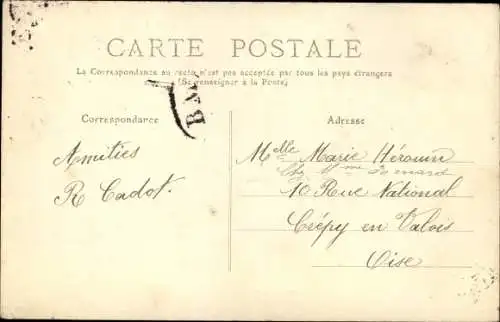 CARTE POSTALE
La Correspondance au recto n'est pas acceptée par tous les pays étrangers
(Se renseigner à la Poste)
Correspondance
Adresse
Amitiés
R Cadot.
Melle Marie
Chez Mme
10 Rue National
Crépy en Valois
Oise